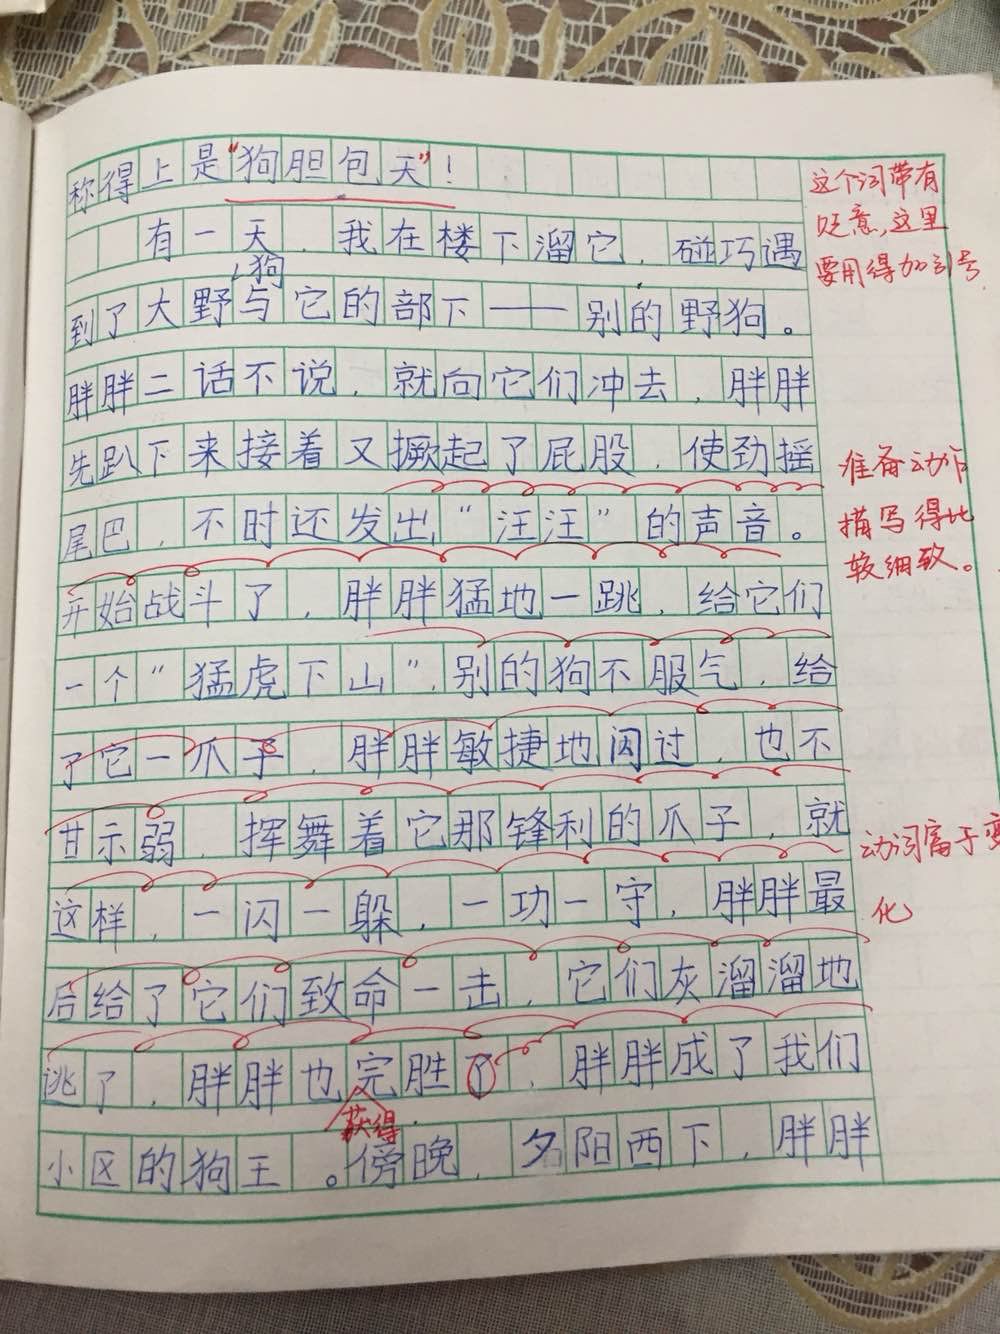 称得上是“狗胆包天”！
有一天，我在楼下溜它，碰巧遇
狗
到了大野与它的部下——别的野狗。
胖胖二话不说，就向它们冲去，胖胖
先趴下来接着又撅起了屁股，使劲摇
尾巴，不时还发出“汪汪”的声音。
开始战斗了，胖胖猛地一跳，给它们
一个“猛虎下山”，别的狗不服气，给
了它一爪子，胖胖敏捷地闪过，也不
甘示弱，挥舞着它那锋利的爪子，就
这样，一闪一躲，一功一守，胖胖最
后给了它们致命一击，它们灰溜溜地
逃了，胖胖也完胜了，胖胖成了我们
获得
小区的狗王。傍晚，夕阳西下，胖胖
这个词带有
贬意，这里
要用得加引号
准备动作
描写得比
较细致。
动词富于变
化